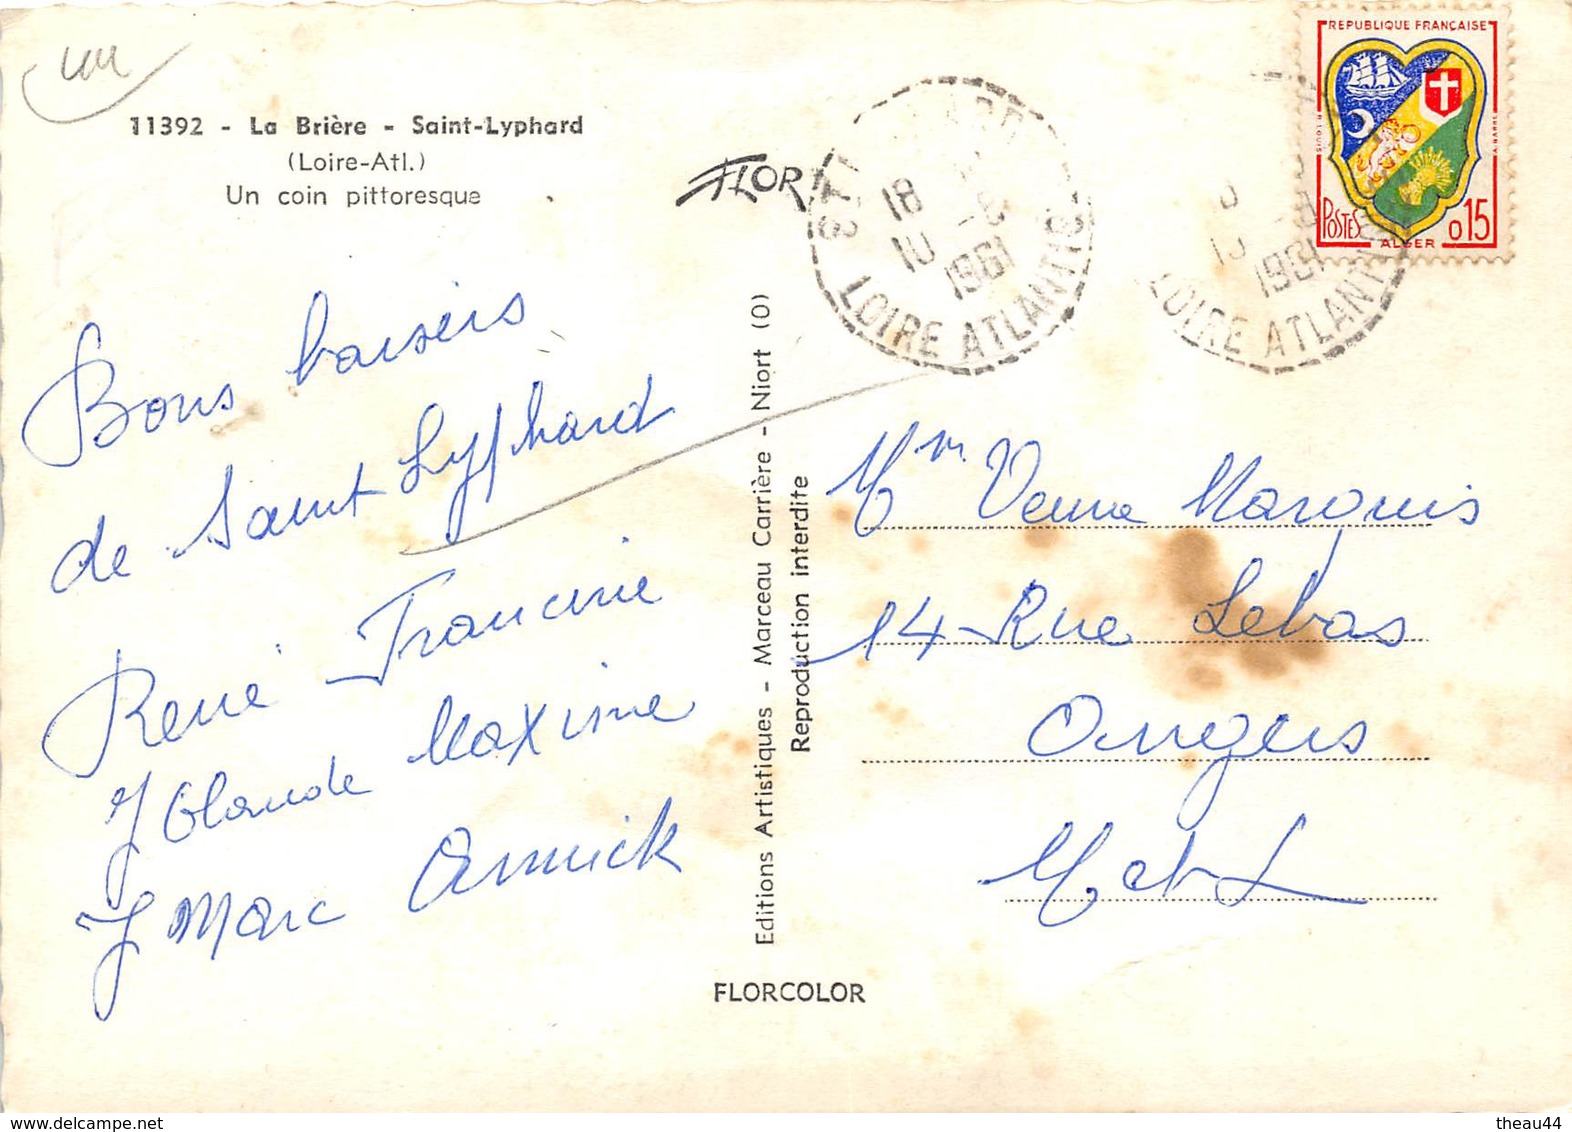 11392 - La Brière - Saint-Lyphard
(Loire-Atl.)
Un coin pittoresque
FLOR
Bons baisers
de Saint Lyphard
René Francine
Yolande Maxime
J Marc Annick
Editions Artistiques - Marceau Carrière - Niort (O)
Reproduction interdite
FLORCOLOR
REPUBLIQUE FRANÇAISE
POSTES
ALGER
0 15
18
10 -8
1961
LOIRE ATLANTIQ
1961
LOIRE ATLANTIQUE
Mm Veuve Marquis
14 Rue Lebas
Angers
M et L
theau44